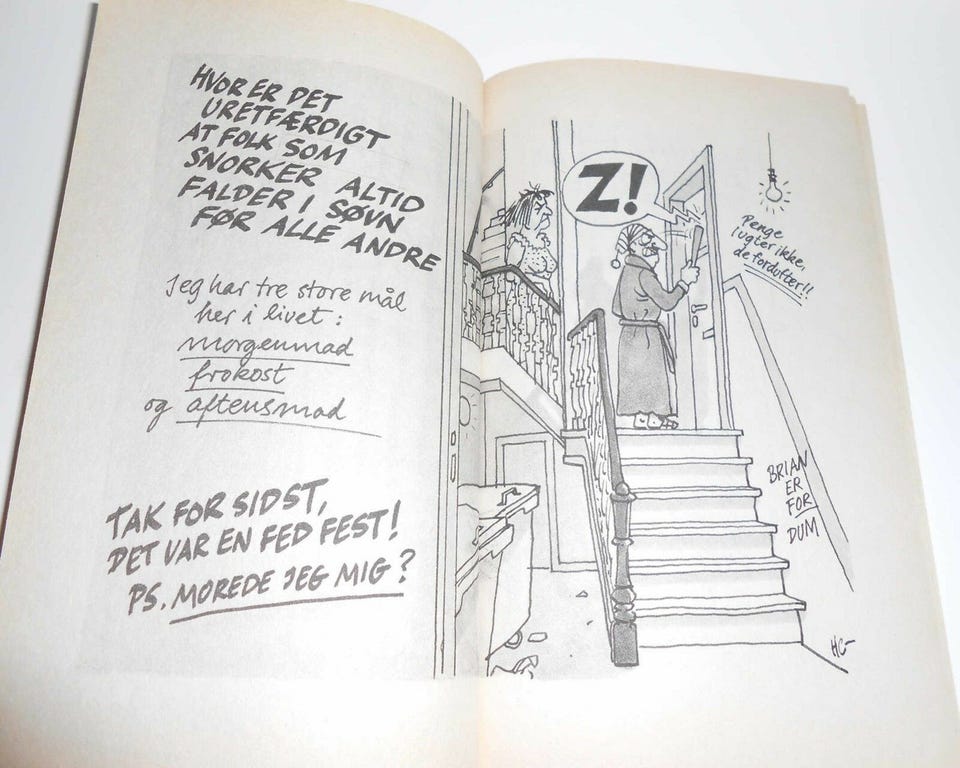 HVOR ER DET
URETFÆRDIGT
AT FOLK SOM
SNORKER ALTID
FALDER I SØVN
FØR ALLE ANDRE
Jeg har tre store mål
her i livet:
morgenmad
frokost
og aftensmad
TAK FOR SIDST,
DET VAR EN FED FEST!
PS. MOREDE JEG MIG?
Z!
Penge
lugter ikke,
de fordufter!!
BRIAN
ER
FOR
DUM
HC-